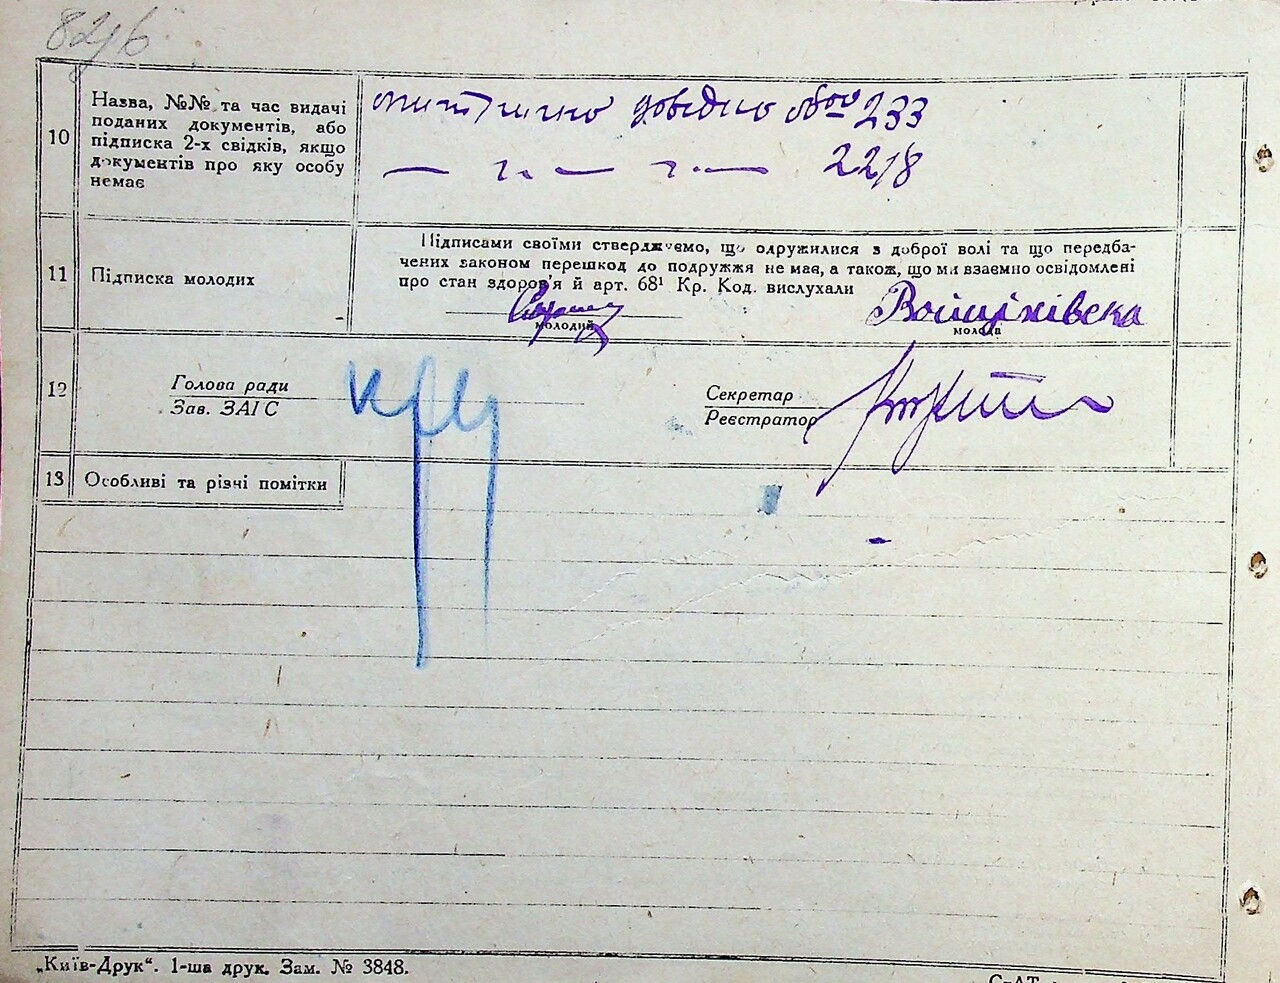 82/6
10
Назва, №№ та час видачі
поданих документів, або
підписка 2-х свідків, якщо
документів про яку особу
немає
233
22/8
11
Підписка молодих
Підписами своїми стверджуємо, що одружилися з доброї волі та що передба-
чених законом перешкод до подружжя не має, а також, що ми взаємно освідомлені
про стан здоров'я й арт. 68¹ Кр. Код. вислухали
молодий
Войціхівска
молода
12
Голова ради
Зав. ЗАГС
Секретар
Реєстратор
13
Особливі та різні помітки
„Київ-Друк". 1-ша друк. Зам. № 3848.